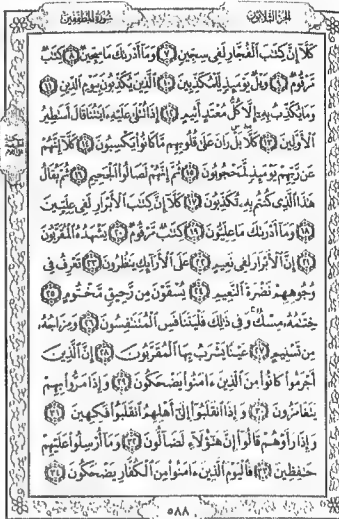 الجزء الثلاثون سورة المطففين
كَلَّآ إِنَّ كِتَٰبَ ٱلْفُجَّارِ لَفِى سِجِّينٍ ٧ وَمَآ أَدْرَىٰكَ مَا سِجِّينٌ ٨ كِتَٰبٌ
مَّرْقُومٌ ٩ وَيْلٌ يَوْمَئِذٍ لِّلْمُكَذِّبِينَ ١٠ ٱلَّذِينَ يُكَذِّبُونَ بِيَوْمِ ٱلدِّينِ ١١
وَمَا يُكَذِّبُ بِهِۦٓ إِلَّا كُلُّ مُعْتَدٍ أَثِيمٍ ١٢ إِذَا تُتْلَىٰ عَلَيْهِ ءَايَٰتُنَا قَالَ أَسَٰطِيرُ
ٱلْأَوَّلِينَ ١٣ كَلَّا بَلْ رَانَ عَلَىٰ قُلُوبِهِم مَّا كَانُوا۟ يَكْسِبُونَ ١٤ كَلَّآ إِنَّهُمْ
عَن رَّبِّهِمْ يَوْمَئِذٍ لَّمَحْجُوبُونَ ١٥ ثُمَّ إِنَّهُمْ لَصَالُوا۟ ٱلْجَحِيمِ ١٦ ثُمَّ يُقَالُ
هَٰذَا ٱلَّذِى كُنتُم بِهِۦ تُكَذِّبُونَ ١٧ كَلَّآ إِنَّ كِتَٰبَ ٱلْأَبْرَارِ لَفِى عِلِّيِّينَ
١٨ وَمَآ أَدْرَىٰكَ مَا عِلِّيُّونَ ١٩ كِتَٰبٌ مَّرْقُومٌ ٢٠ يَشْهَدُهُ ٱلْمُقَرَّبُونَ
٢١ إِنَّ ٱلْأَبْرَارَ لَفِى نَعِيمٍ ٢٢ عَلَى ٱلْأَرَآئِكِ يَنظُرُونَ ٢٣ تَعْرِفُ فِى
وُجُوهِهِمْ نَضْرَةَ ٱلنَّعِيمِ ٢٤ يُسْقَوْنَ مِن رَّحِيقٍ مَّخْتُومٍ ٢٥
خِتَٰمُهُۥ مِسْكٌ وَفِى ذَٰلِكَ فَلْيَتَنَافَسِ ٱلْمُتَنَٰفِسُونَ ٢٦ وَمِزَاجُهُۥ
مِن تَسْنِيمٍ ٢٧ عَيْنًا يَشْرَبُ بِهَا ٱلْمُقَرَّبُونَ ٢٨ إِنَّ ٱلَّذِينَ
أَجْرَمُوا۟ كَانُوا۟ مِنَ ٱلَّذِينَ ءَامَنُوا۟ يَضْحَكُونَ ٢٩ وَإِذَا مَرُّوا۟ بِهِمْ
يَتَغَامَزُونَ ٣٠ وَإِذَا ٱنقَلَبُوٓا۟ إِلَىٰٓ أَهْلِهِمُ ٱنقَلَبُوا۟ فَكِهِينَ ٣١
وَإِذَا رَأَوْهُمْ قَالُوٓا۟ إِنَّ هَٰٓؤُلَآءِ لَضَآلُّونَ ٣٢ وَمَآ أُرْسِلُوا۟ عَلَيْهِمْ
حَٰفِظِينَ ٣٣ فَٱلْيَوْمَ ٱلَّذِينَ ءَامَنُوا۟ مِنَ ٱلْكُفَّارِ يَضْحَكُونَ ٣٤
٥٨٨